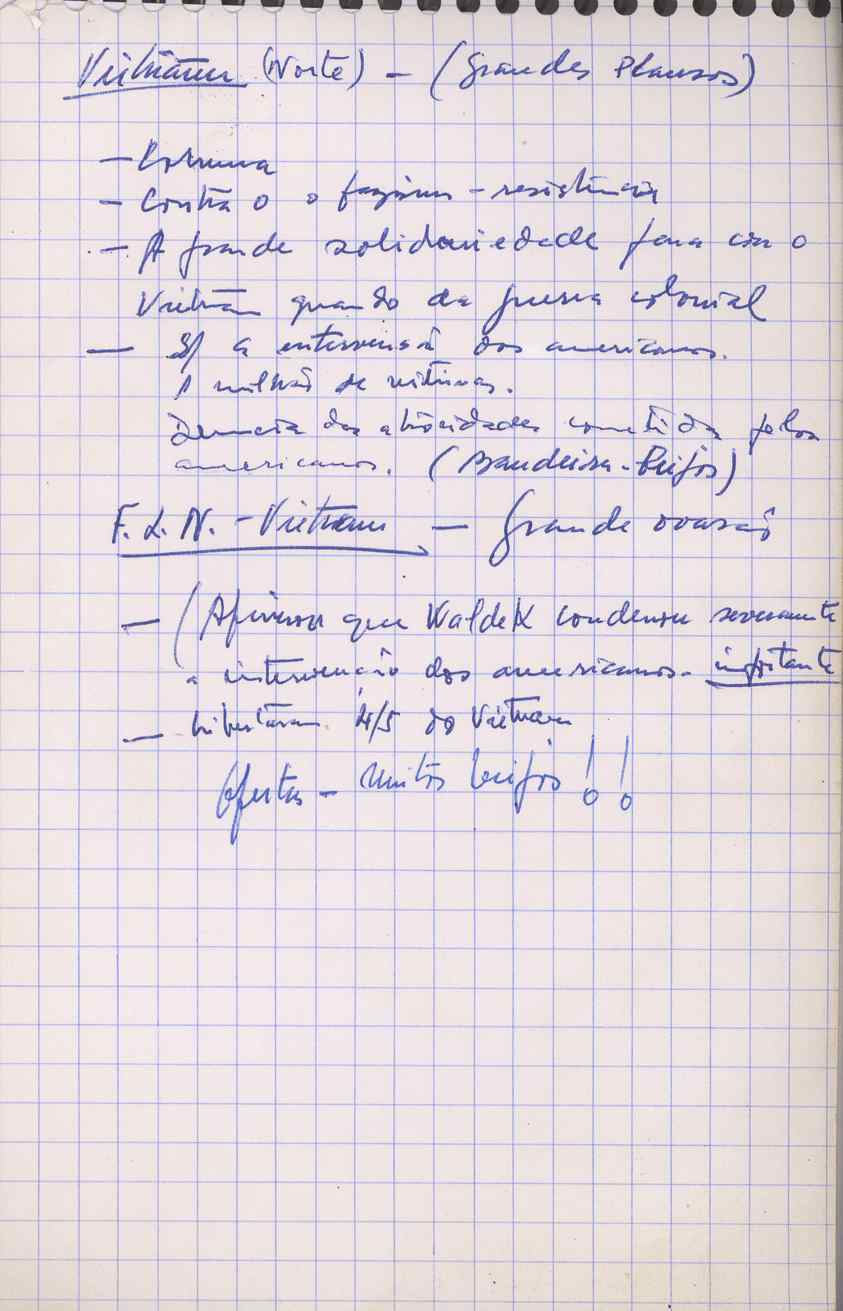 Vietnam (Norte) - (Grandes Plausos)
- Comuna
- Contra o o fascismo - resistência
- A grande solidariedade para com o
Vietnam quando da guerra colonial
- S/ a intervensão dos americanos.
1 milhão de vitimas.
Denuncia das atrocidades cometidas pelos
americanos. (Bandeira-Beijos)
F. L. N. - Vietnam - Grande ovasão
- (Afirmou que Waldek condenou severamente
a intervenção dos americanos - importante
- Libertaram 4/5 do Vietnam
Ofertas - Muitos beijos !!